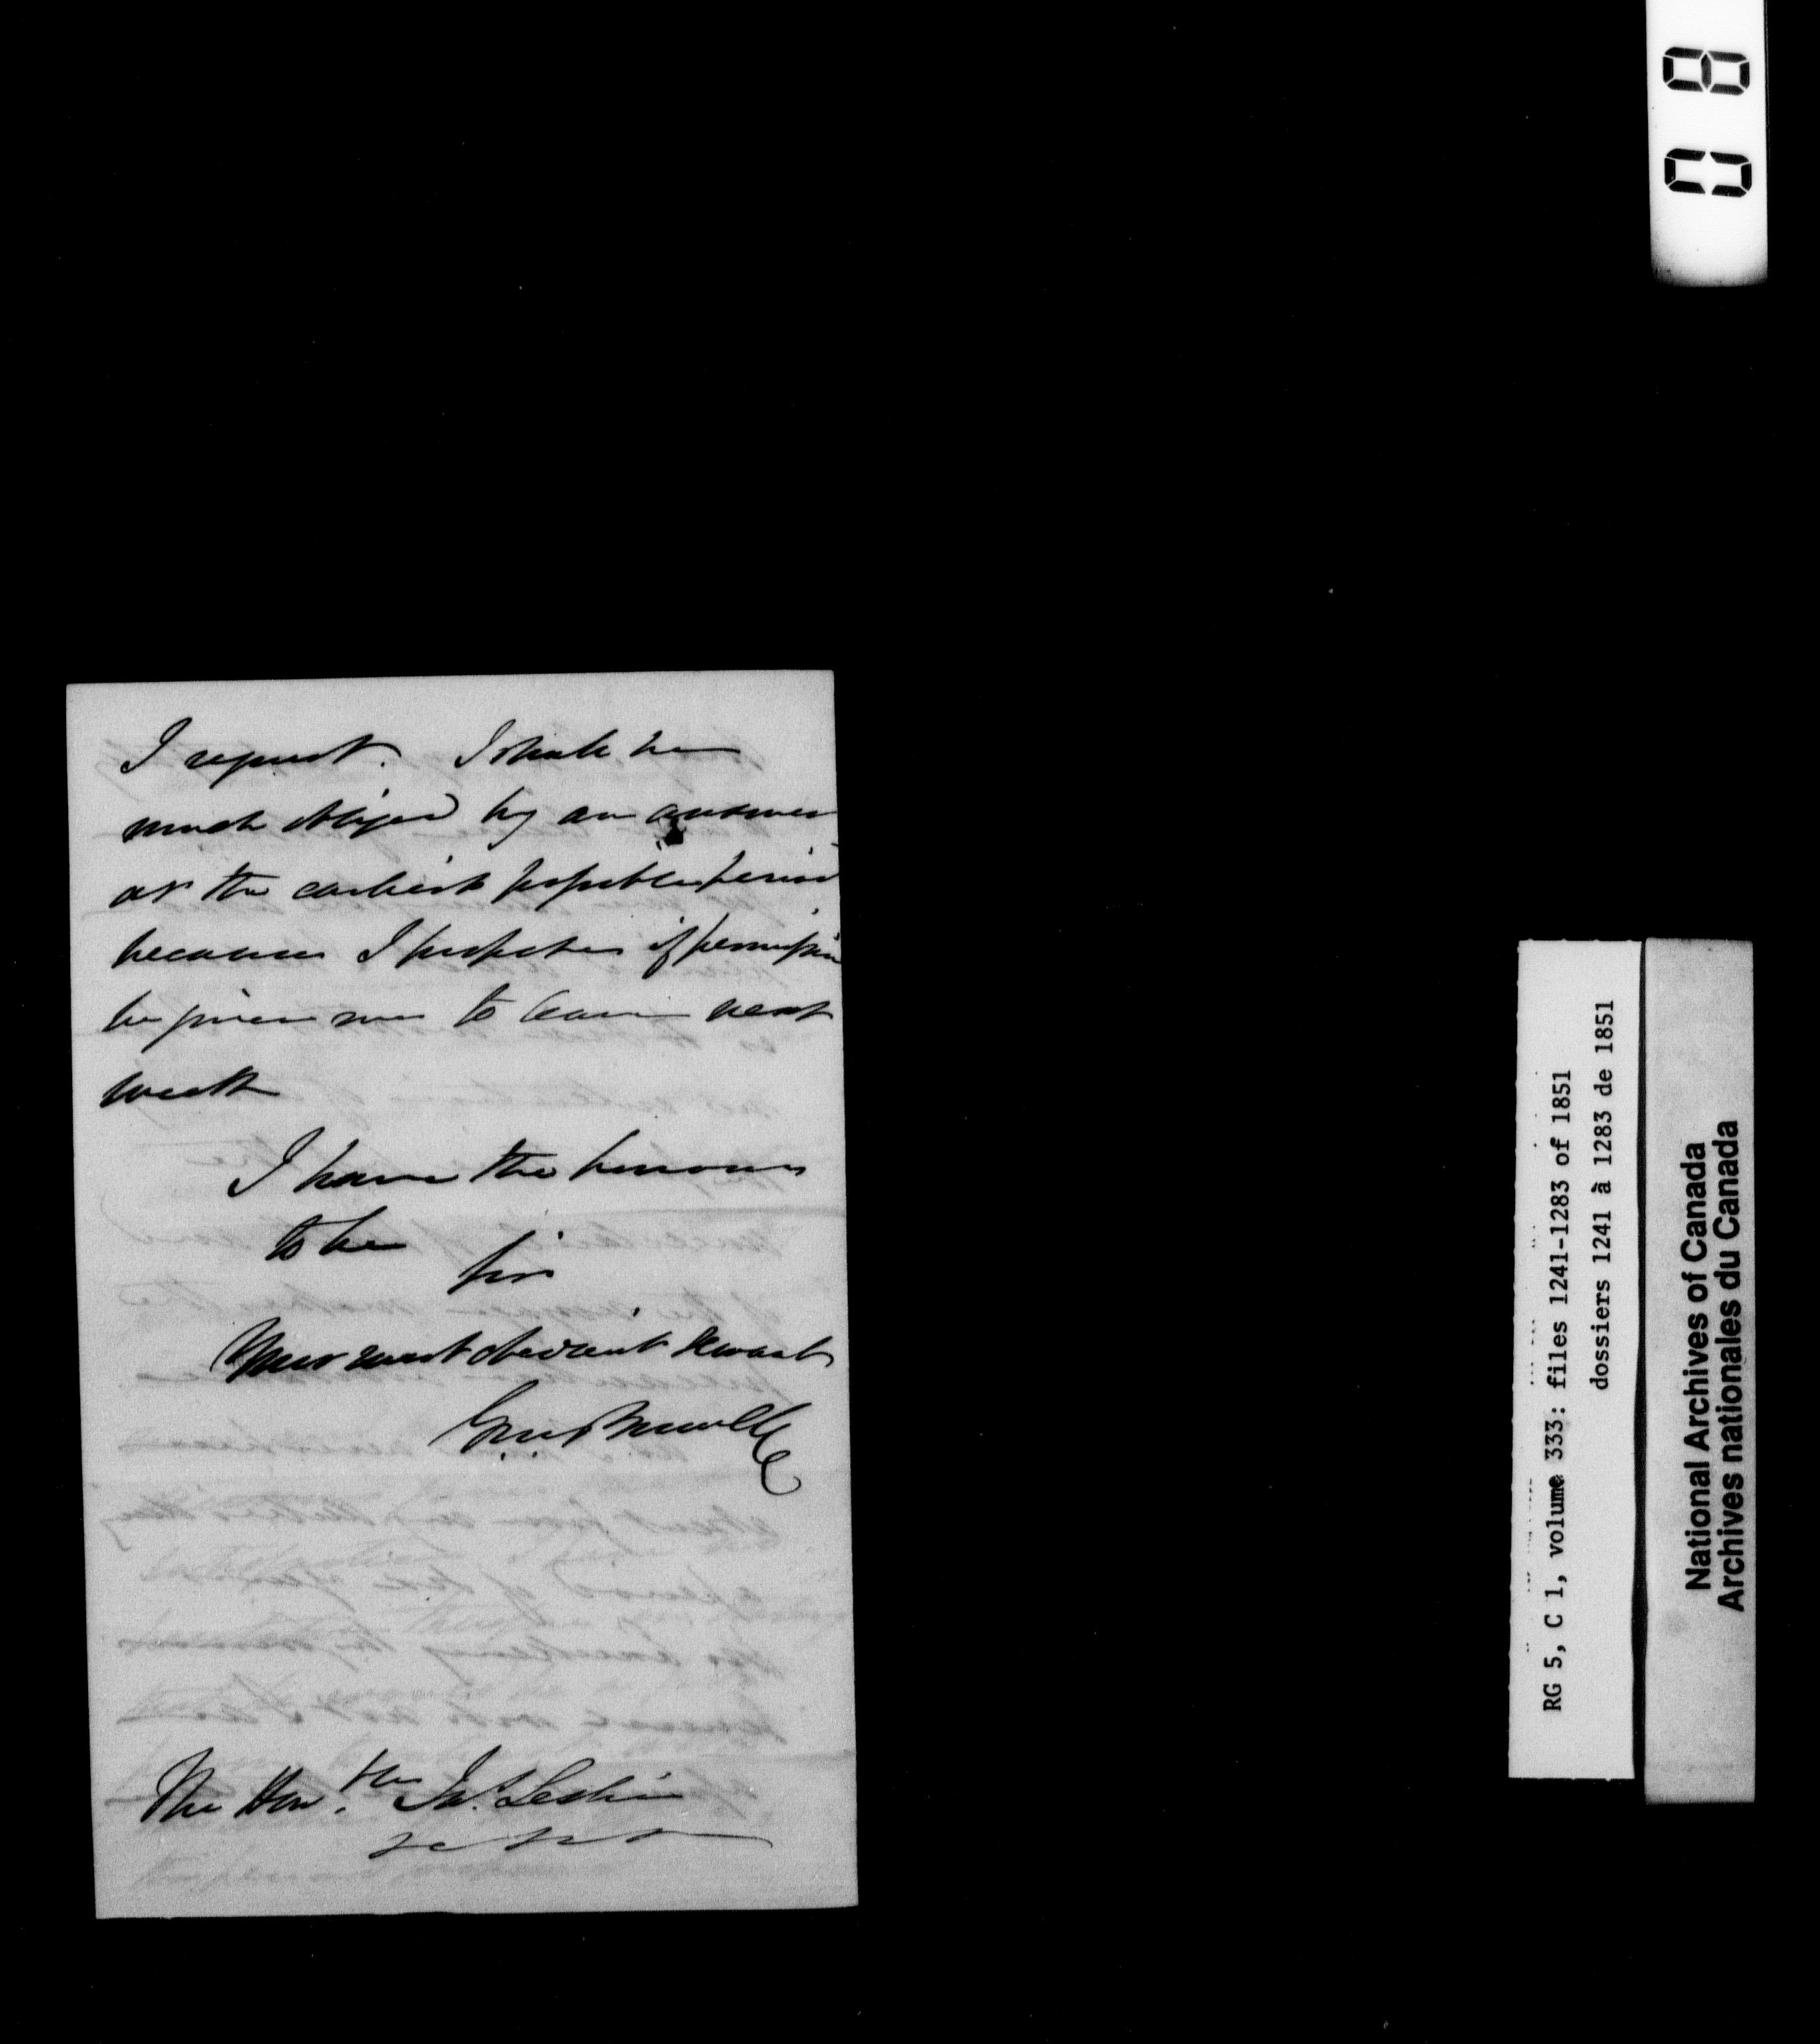 I request. I shall be
much obliged by an answer
at the earliest possible period
because I propose if permission
be given me to leave next
week
I have the honour
to be
Sir
Your most obedient Servant
The Hon.ble Jas. Leslie
&c &c &c
RG 5, C 1, volume 333: files 1241-1283 of 1851
dossiers 1241 à 1283 de 1851
National Archives of Canada
Archives nationales du Canada
08